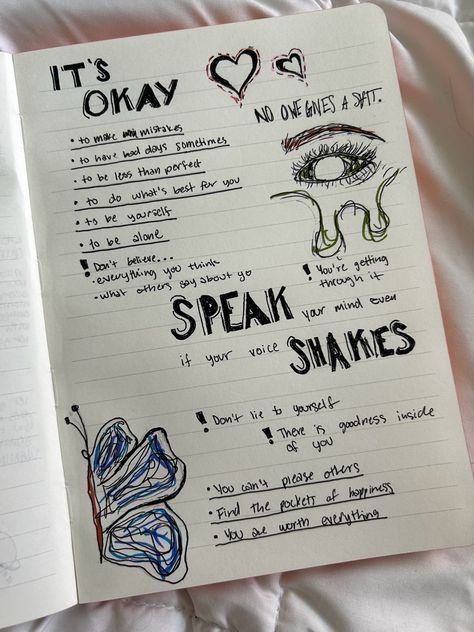 IT'S
OKAY
NO ONE GIVES A SH*T.
• to make mistakes
• to have bad days sometimes
• to be less than perfect
• to do what's best for you
• to be yourself
• to be alone
! Don't believe...
• everything you think
• what others say about yo
! You're getting
through it
SPEAK your mind even
if your voice SHAKES
! Don't lie to yourself
! There is goodness inside
of you
• You can't please others
• Find the pockets of happiness
• You are worth everything